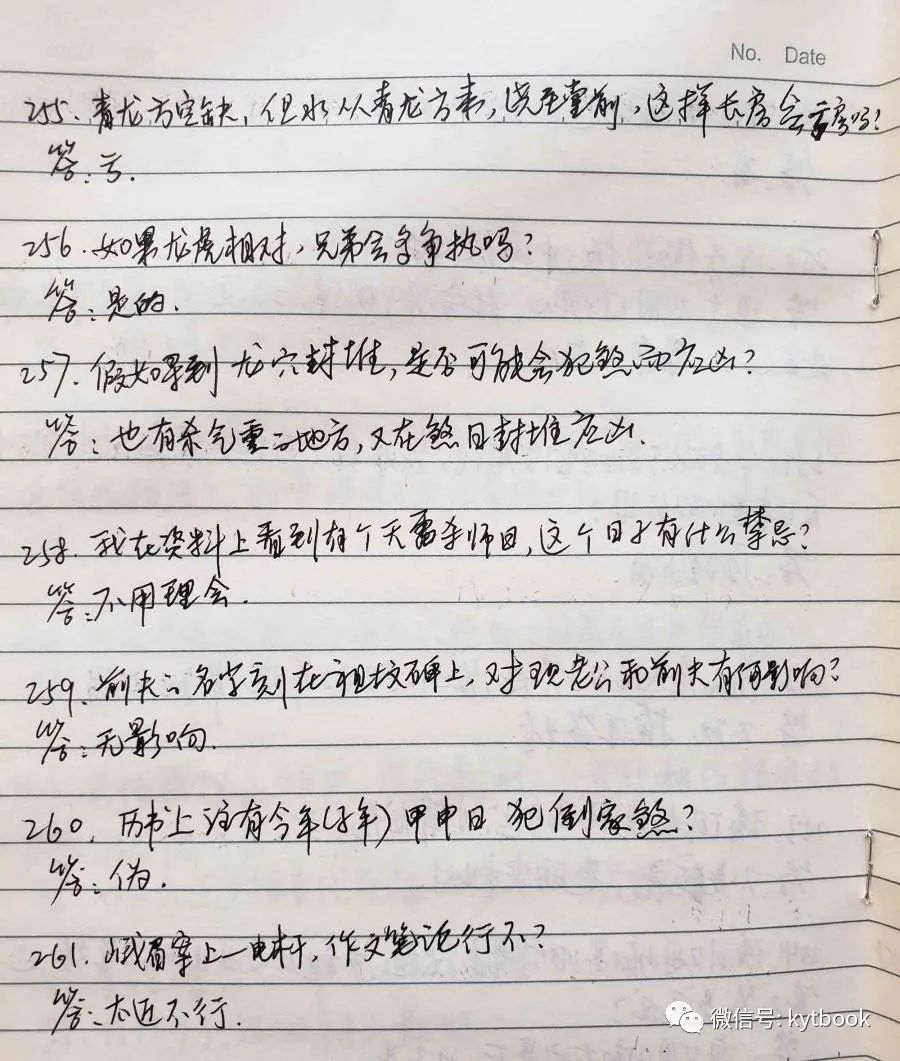 No. Date
255. 青龙方空缺, 但水从青龙方来, 绕至堂前, 这样长房会亏吗?
答: 亏.
256. 如果龙虎相对, 兄弟会多争执吗?
答: 是的.
257. 假如果到龙穴封堆, 是否可能会犯煞而应凶?
答: 也有杀气重之地方, 又在煞日封堆应凶.
258. 我在资料上看到有个天雷杀师日, 这个日子有什么禁忌?
答: 不用理会.
259. 前夫之名字刻在祖坟碑上, 对现老公和前夫有何影响?
答: 无影响.
260. 历书上注有今年(子年) 甲申日 犯倒家煞?
答: 伪.
261. 峨眉案上一电杆, 作文笔论行不?
答: 太近不行.
微信号: kytbook